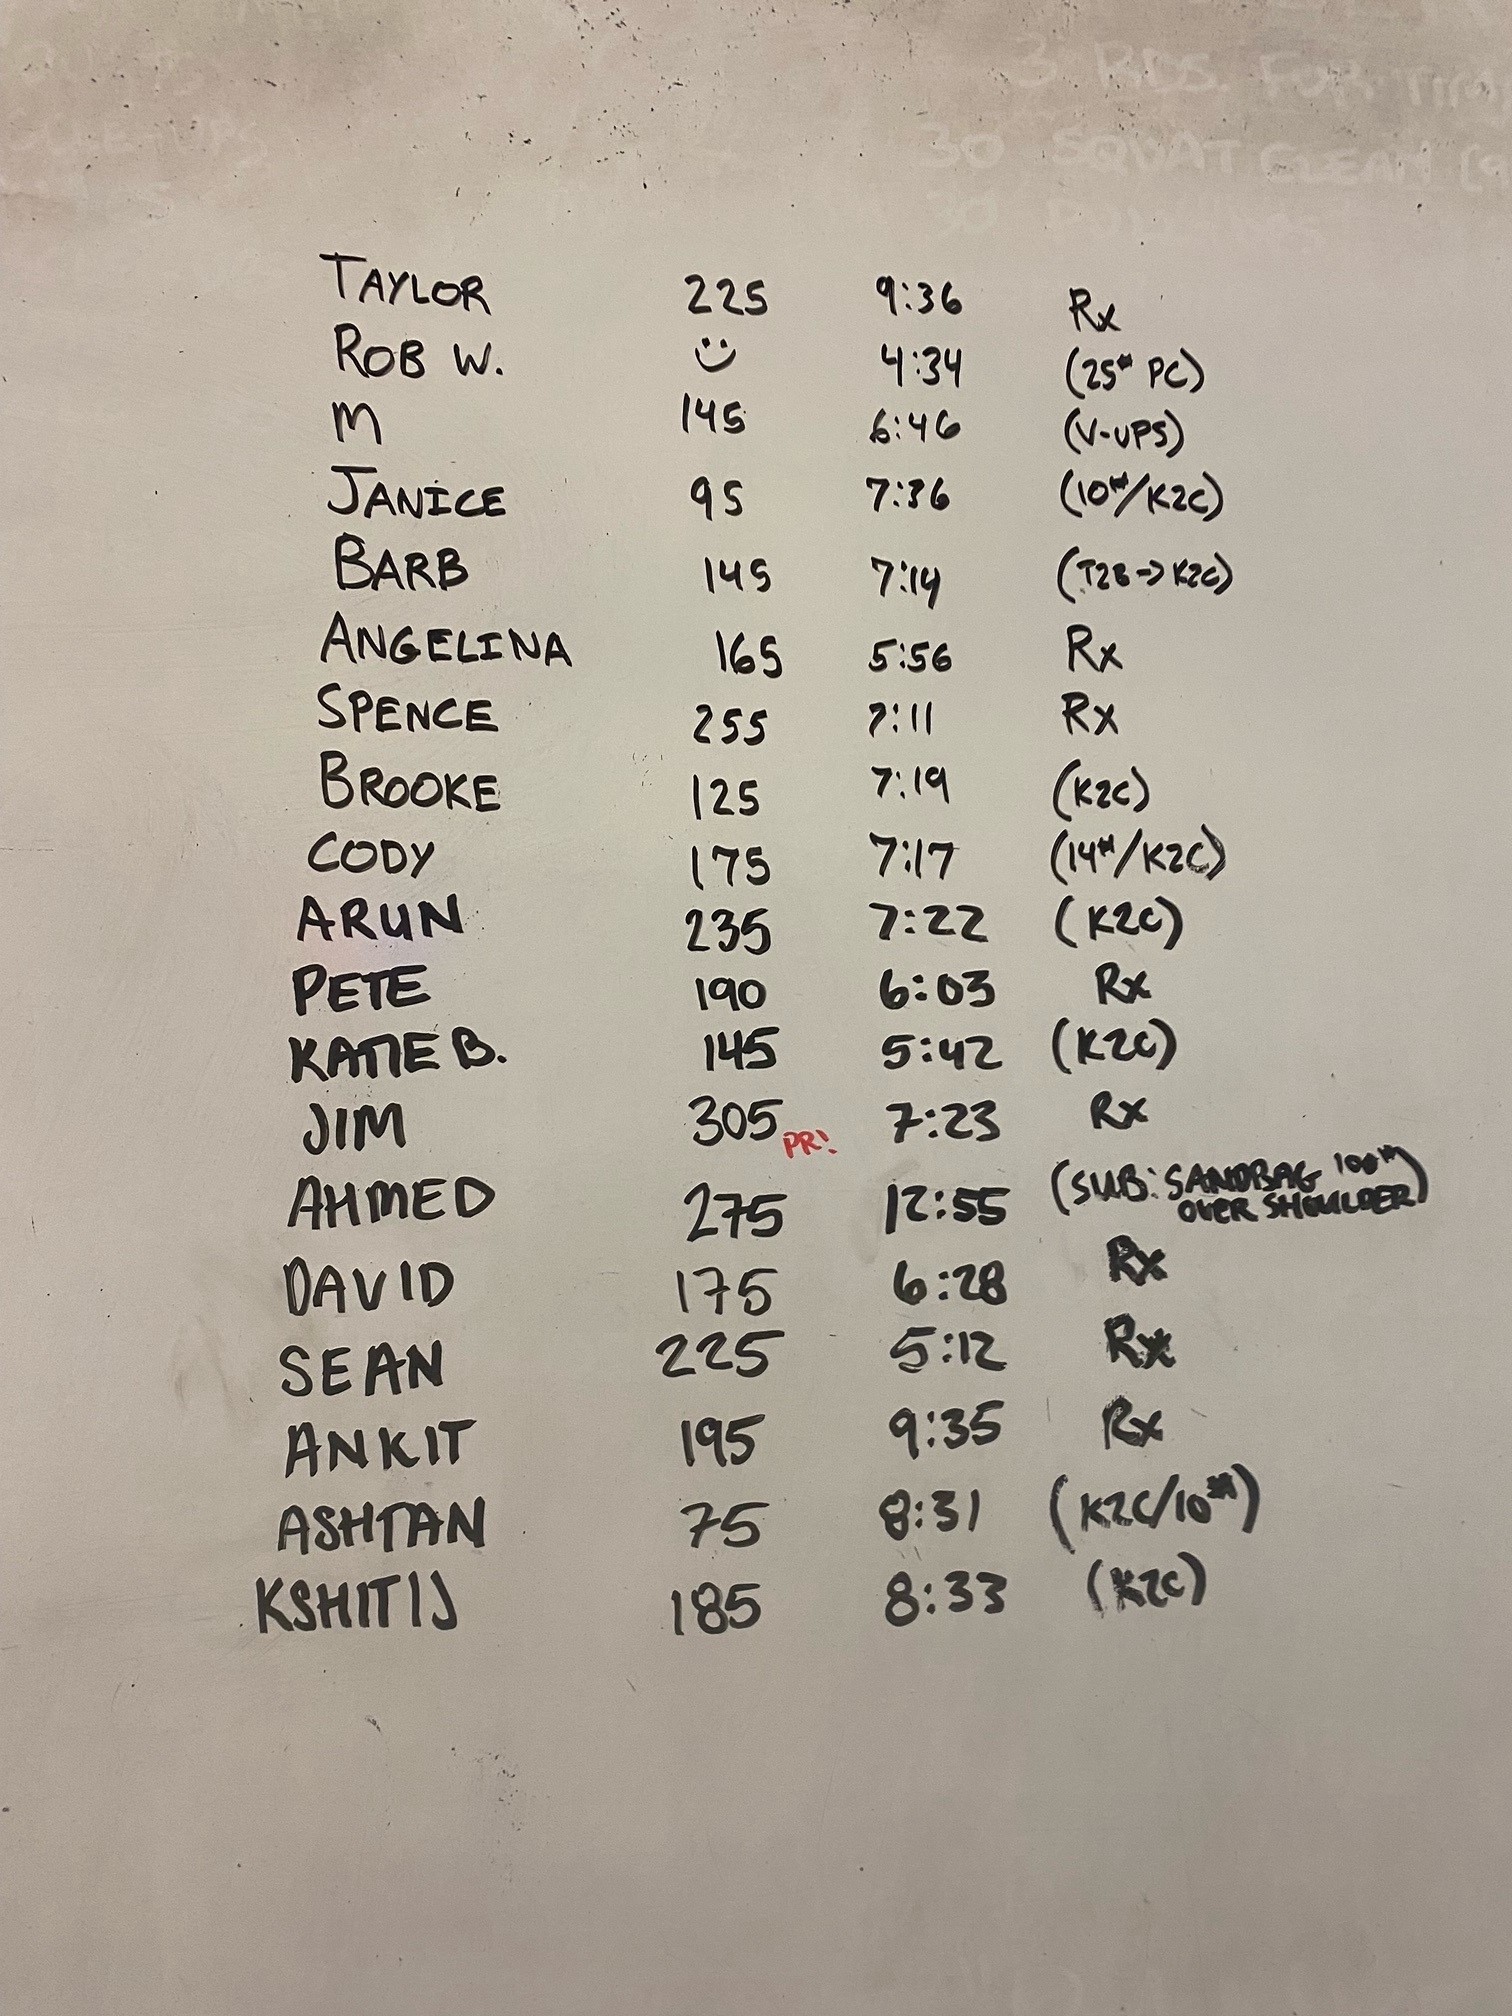 3 RDS. FOR TIM
30 SQUAT CLEAN (9
30 PULL-UPS
TAYLOR 225 9:36 Rx
ROB W. :) 4:34 (25# PC)
M 145 6:46 (V-UPS)
JANICE 95 7:36 (10#/K2C)
BARB 145 7:14 (T2B->K2C)
ANGELINA 165 5:56 Rx
SPENCE 255 7:11 Rx
BROOKE 125 7:19 (K2C)
CODY 175 7:17 (14#/K2C)
ARUN 235 7:22 (K2C)
PETE 190 6:03 Rx
KATIE B. 145 5:42 (K2C)
JIM 305 PR! 7:23 Rx
AHMED 275 12:55 (SUB: SANDBAG 100#
OVER SHOULDER)
DAVID 175 6:28 Rx
SEAN 225 5:12 Rx
ANKIT 195 9:35 Rx
ASHTAN 75 8:31 (K2C/10#)
KSHITIJ 185 8:33 (K2C)